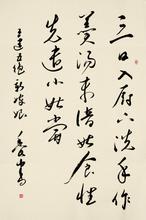 三日入厨下洗手作
羹汤未谙姑食性
先遣小姑尝
王建五绝新嫁娘